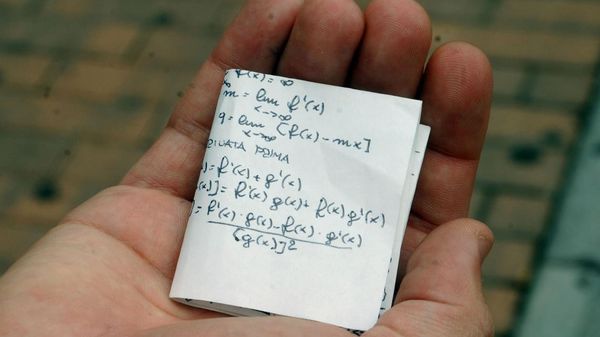 f(x) = ∞
m = lim f'(x)
x→∞
q = lim [f(x) - mx]
x→∞
PRIMA
) = f'(x) + g'(x)
(x)] = f'(x) g(x) + f(x) g'(x)
) = f'(x) · g(x) - f(x) · g'(x)
[g(x)]2